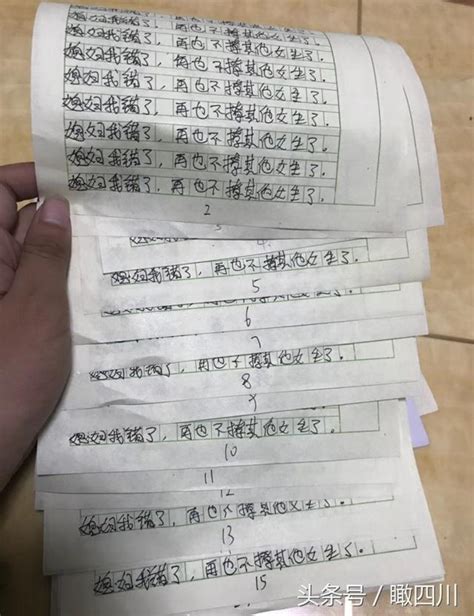 媳妇我错了，再也不撩其他女生了。
媳妇我错了，再也不撩其他女生了。
媳妇我错了，再也不撩其他女生了。
媳妇我错了，再也不撩其他女生了。
媳妇我错了，再也不撩其他女生了。
媳妇我错了，再也不撩其他女生了。
媳妇我错了，再也不撩其他女生了。
媳妇我错了，再也不撩其他女生了。
2
3
4
媳妇我错了，再也不撩其他女生了。
5
6
7
媳妇我错了，再也不撩其他女生了。
8
9
媳妇我错了，再也不撩其他女生了。
10
11
12
媳妇我错了，再也不撩其他女生了。
13
媳妇我错了，再也不撩其他女生了。
15
头条号 / 瞰四川